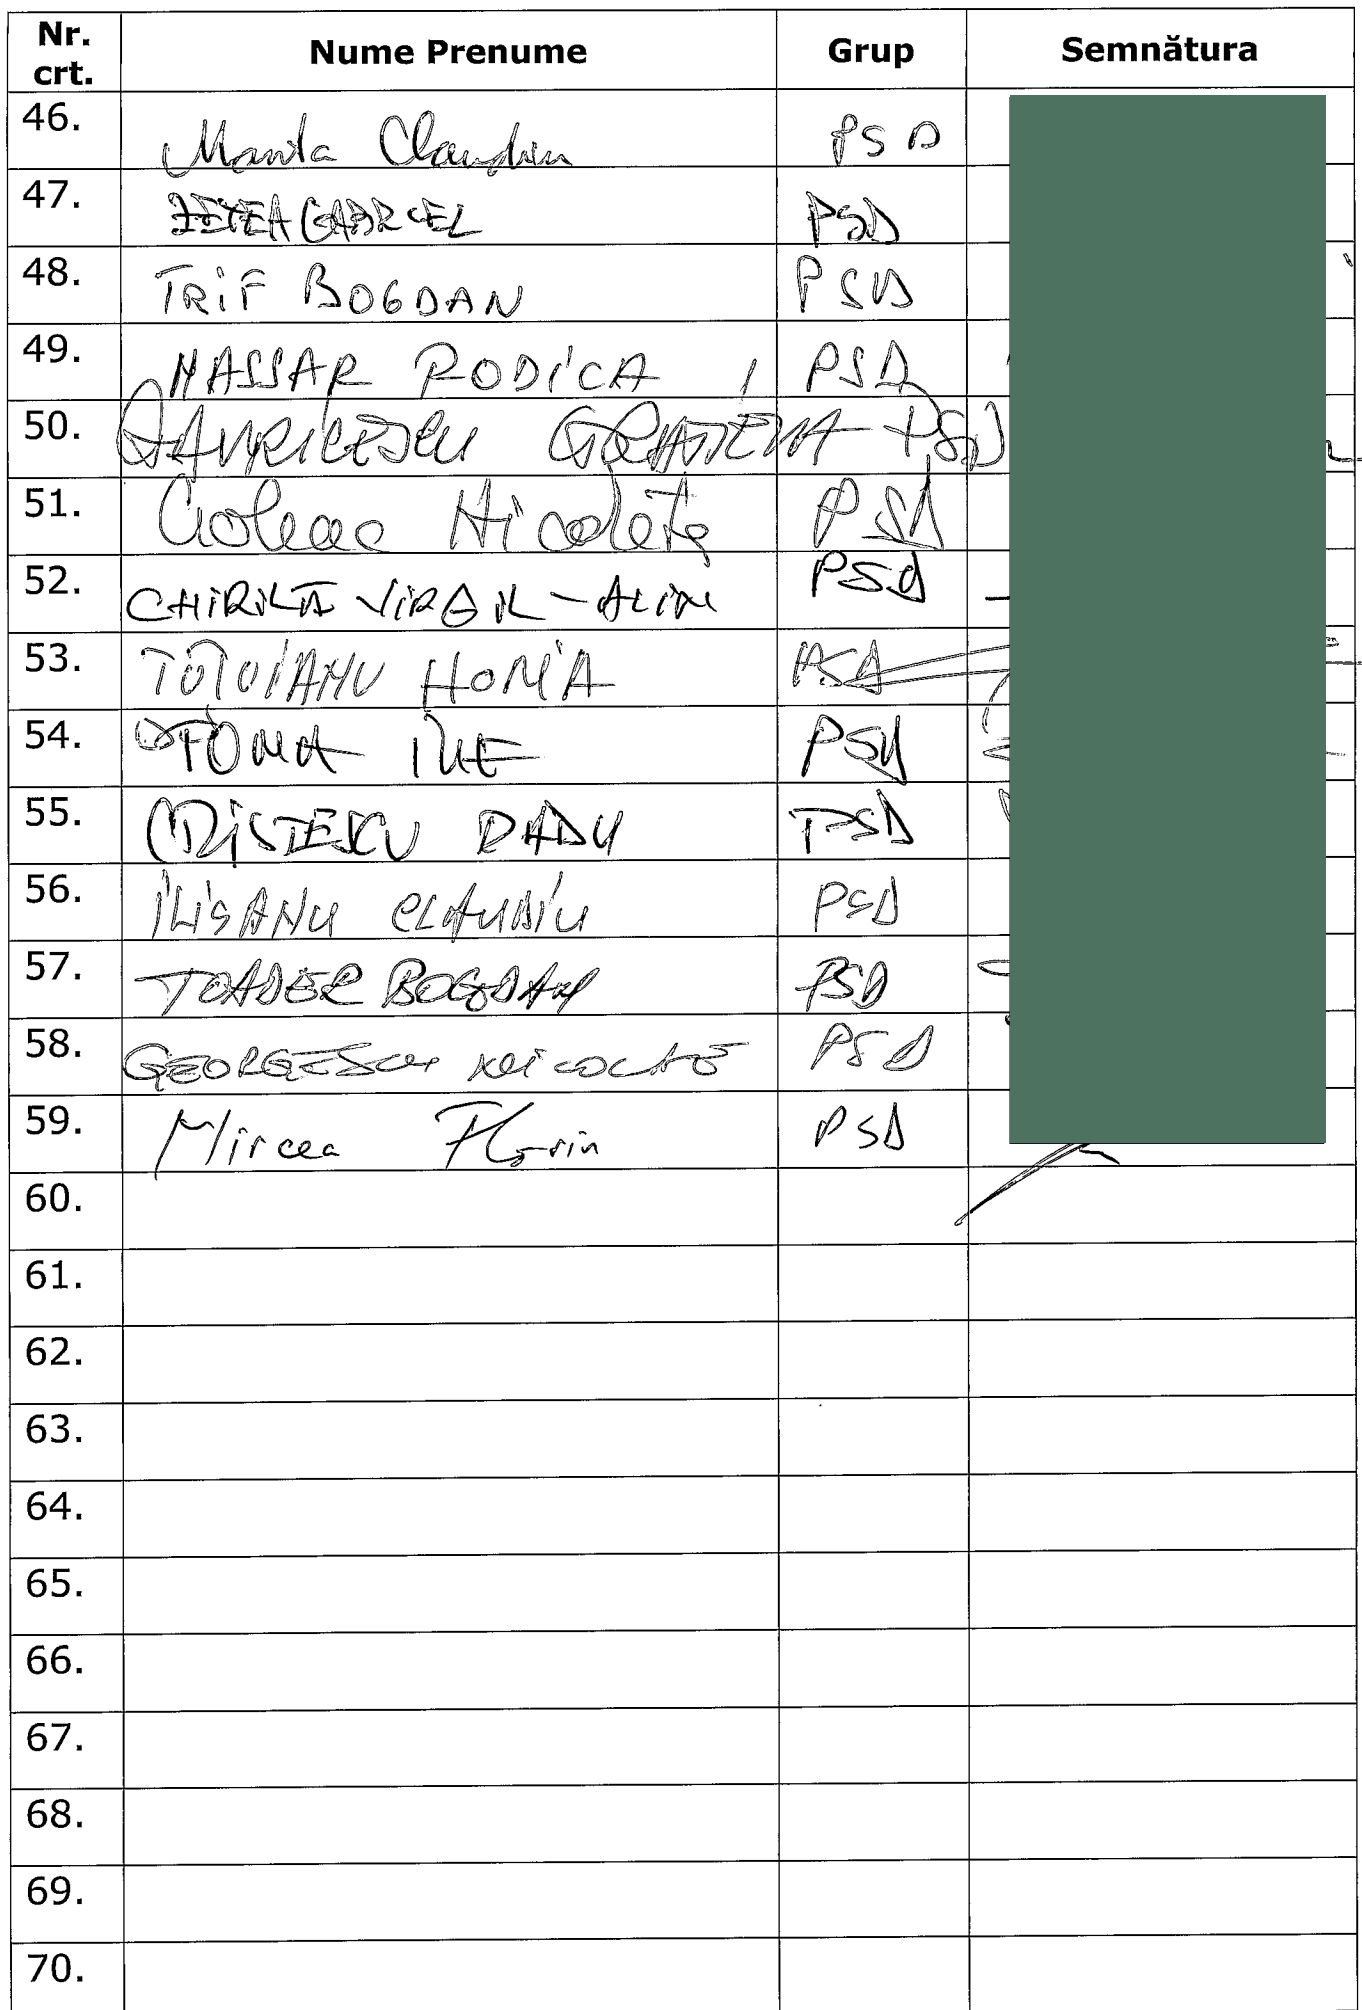 Nr. crt. Nume Prenume Grup Semnătura
46. Manta Claudiu PSD
47. ZETEA GABRIEL PSD
48. TRIF BOGDAN PSD
49. NASSAR RODICA PSD
50. GAVRILESCU GRATIELA PSD
51. Nicoleta PSD
52. CHIRILĂ VIRGIL-ALIN PSD
53. TOTOIANU HORIA PSD
54. TOMA ILIE PSD
55. CRISTESCU RADU PSD
56. ILISANU CLAUDIU PSD
57. TOADER BOGDAN PSD
58. GEORGESCU NICOLAE PSD
59. Mircea Florin PSD
60.
61.
62.
63.
64.
65.
66.
67.
68.
69.
70.